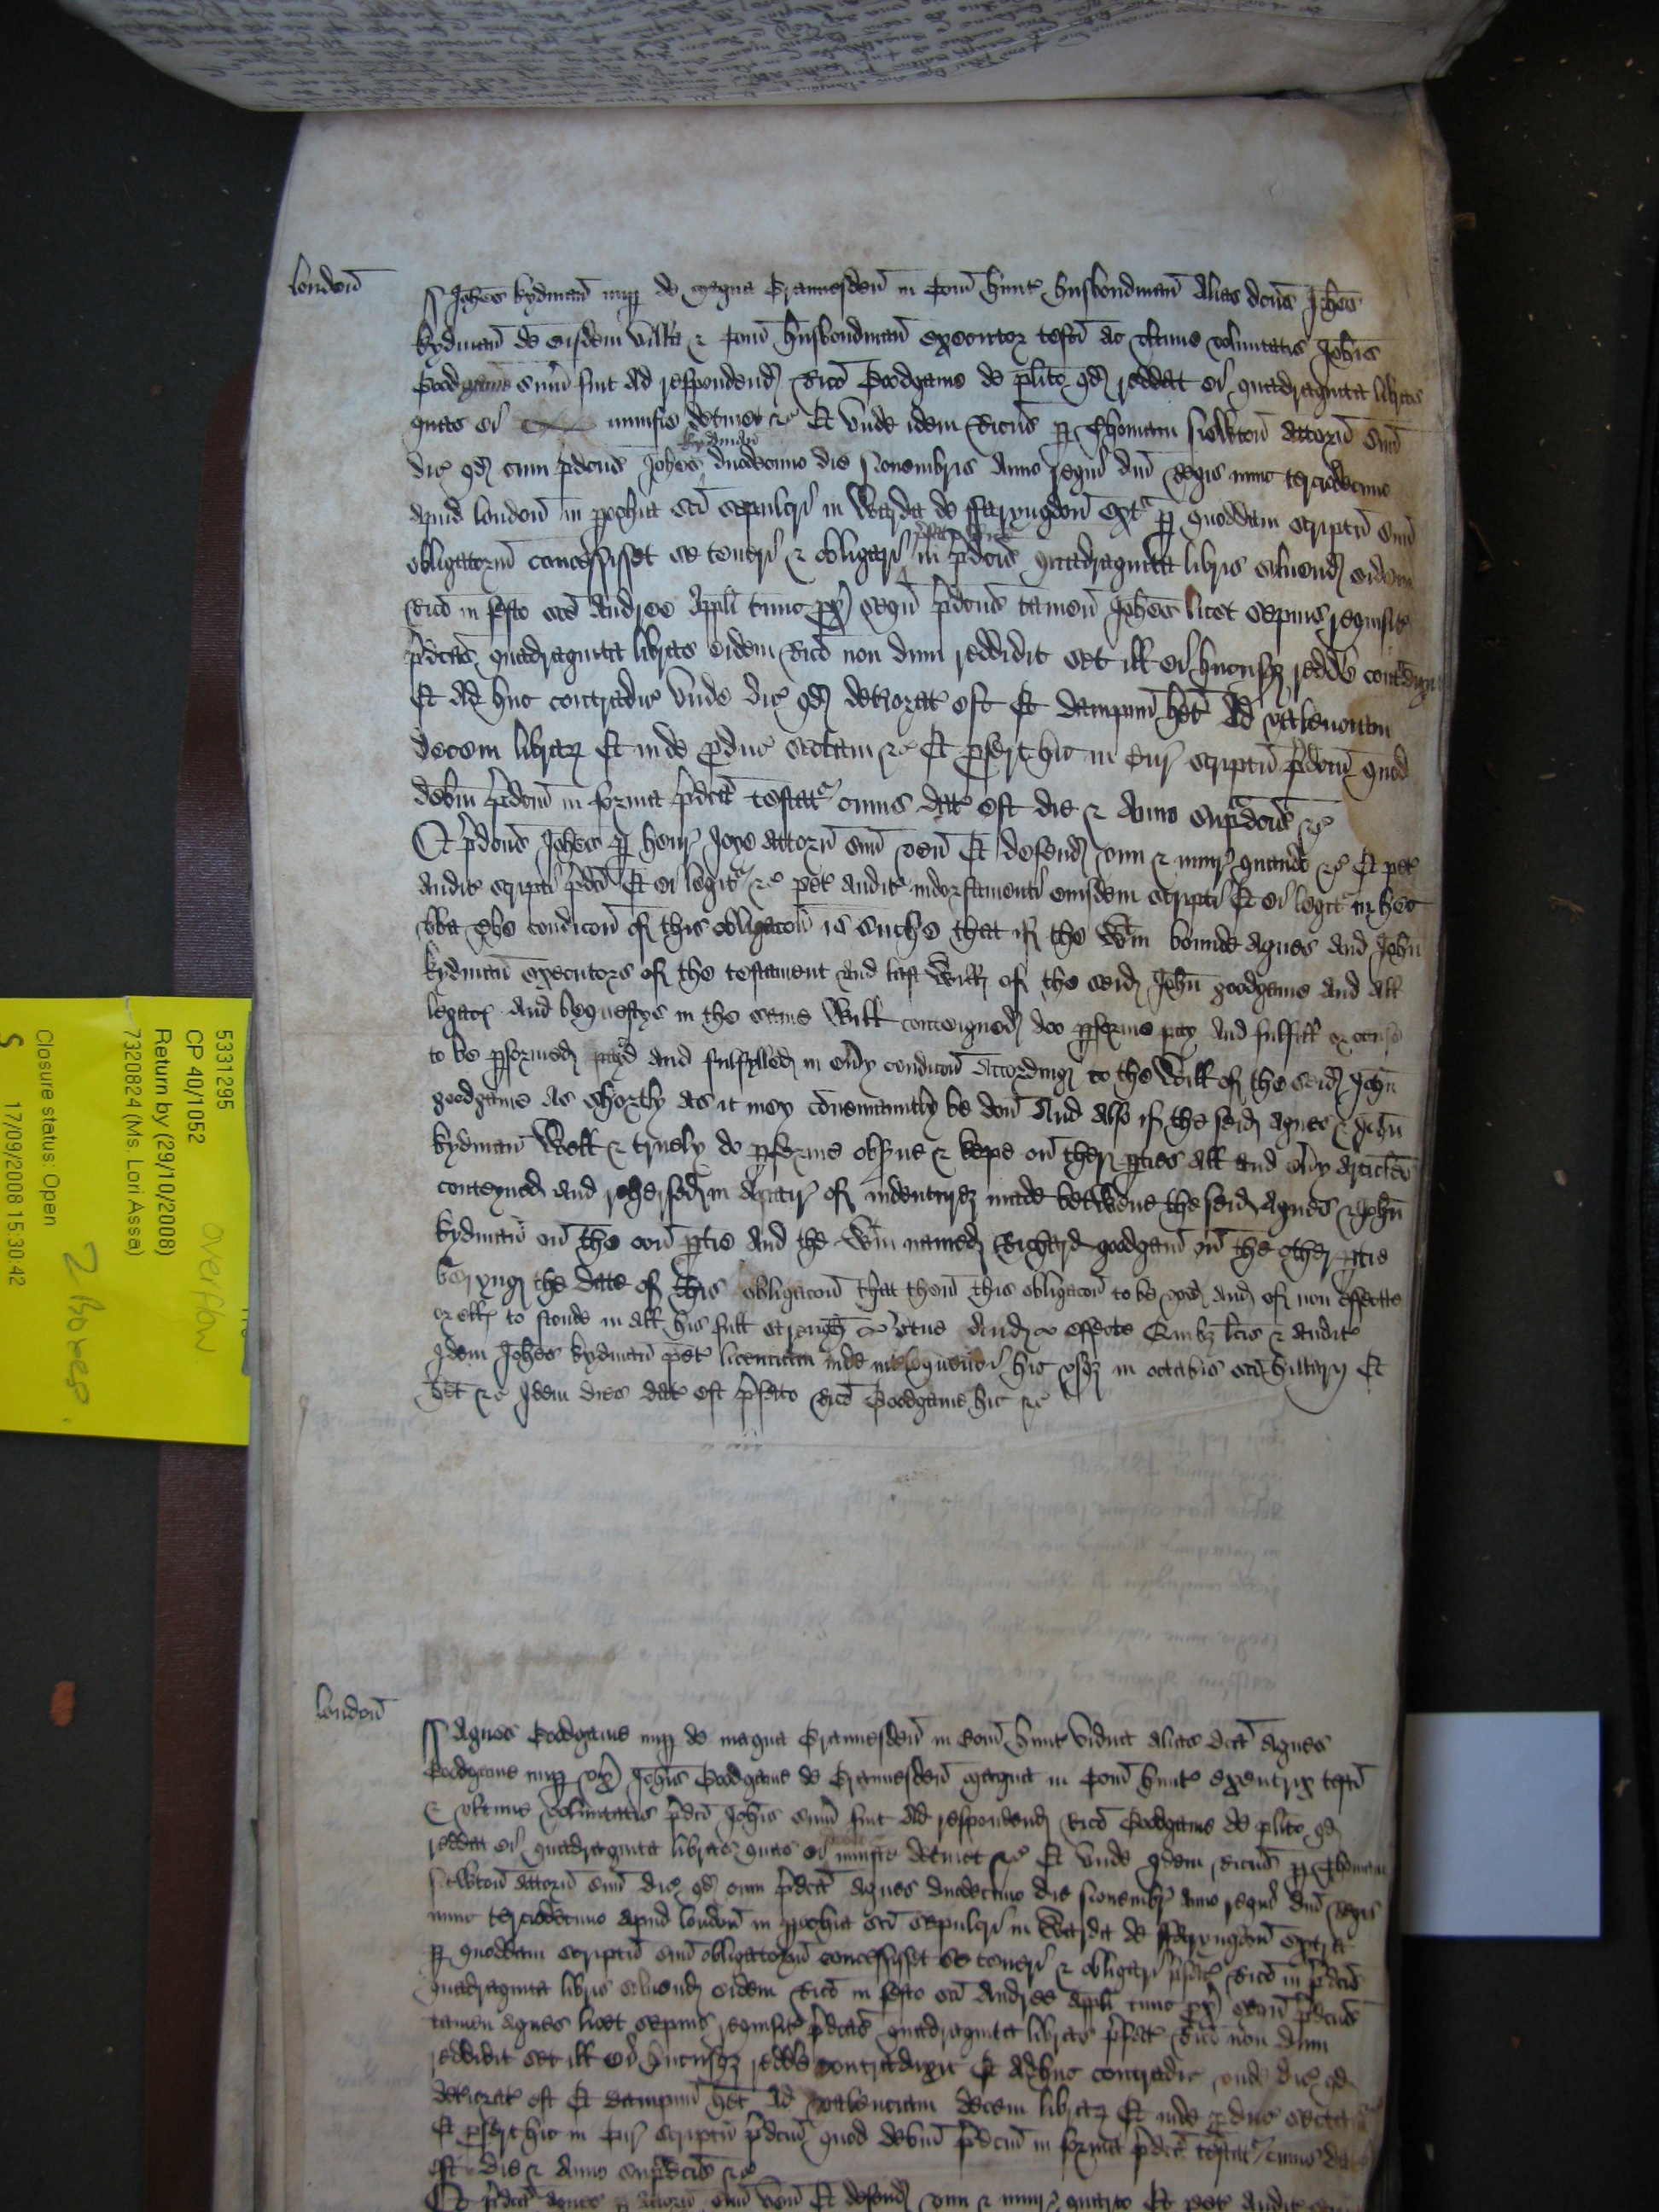 london
Johes kydman nup de magna Grannesden in Com hunt husbondman Alias dcus Johes
kydman de eisdem villa & Com husbondman executor testi ac ultime voluntatis Johis
Goodgame sum fuit ad respondend Rico Goodgame de plito qd reddat ei quadraginta libras
quas ei iniuste detinet &c Et unde idem Ricus p Thomam attorn suu
dic qd cum pdcus Johes kydman duodecimo die Novembris Anno regni dni Regis nunc terciodecimo
apud london in pochia sci sepulcri in Warda de ffaryngdon ext p quoddam scriptu suu
obligatoriu concessisset se teneri & obligari pfato Rico in pdcis quadraginta libris solvend eidem
Rico in festo sci Andree Appli tunc px sequ pdcus tamen Johes licet sepius requisit
pdcas quadraginta libras eidem Rico non dum reddidit set ill ei hucusq redde contradix
Et adhuc contradic unde dic qd deteriorat est Et dampnu het ad valenciam
decem librar Et inde pduc sectam &c Et pfert hic in Cur scriptu pdcm quod
debm pdcm in forma pdca testat cuius dat est die & Anno supdcis &c
Et pdcus Johes p henr Joye attorn suu ven Et defend vim & iniur quando &c Et pet
audit scripti pdci Et ei legit &c pet audit indorsamenti eiusdem scripti Et ei legit in hec
vba The condicon of this obligacon is suche that if the wtin bounde Agnes And John
kydman executors of the testament And last Will of the seid John goodgame And All
legacs And bequestys in the same Will conteigned doo pforme pay And fulfill or cause
to be pformed payd and fulfylled in evy condicon Accordyng to the Will of the seid John
goodgame As shortly as it may conveniantly be don And Also if the seid Agnes & John
kydman Well & truely do pforme obsve & kepe on ther pties All and evy articles
conteyned And rehersed in A payr of indenturez made betwene the seid Agnes & John
kydman on the oon ptie And the wtin named Richard goodgam on the other ptie
beryng the date of this obligacon that then this obligacon to be voyd And of non effecte
or ell to stonde in All his full strength & vtue And effecte Quibz lcis & audit
Idem Johes kydman pet licenciam inde inteloquendi hic usq in octabis sci hillarij Et
het &c Idem dies dat est pfato Rico Goodgame hic &c
london
Agnes Goodgame nup de magna Grannesden in Com hunt vidua Alias dca Agnes
Goodgame nup ux Johis Goodgame de Grannesden magna in Com hunt executrix testi
& ultime voluntatis pdci Johis sum fuit ad respondend Rico Goodgame de plito qd
reddat ei quadraginta libras quas ei iniuste detinet &c Et unde Idem Ricus p Thomam
attorn suu dic qd cum pdca Agnes duodecimo die Novembr Anno regni dni Regis
nunc terciodecimo apud london in pochia sci sepulcri in Warda de ffaryngdon extra
p quoddam scriptu suu obligatoriu concessisset se teneri & obligari pfato Rico in pdcis
quadraginta libris solvend eidem Rico in festo sci Andree Appli tunc px sequ pdcus
tamen Agnes licet sepius requisit pdcas quadraginta libras pfato Rico non dum
reddidit set ill ei hucusq redde contradixit Et Adhuc contradic unde dic qd
deteriorat est Et dampnu het Ad valenciam decem librar Et inde pduc sectam
Et pfert hic in Cur scriptu pdcm quod debm pdcm in forma pdca testat cuius dat
est die & Anno supdcis &c
Et pdca Agnes p attorn suu ven Et defend vim & iniur quando Et pet audit
5331295
CP 40/1052
Return by (29/10/2008)
7320824 (Ms. Lori Assa)
Closure status: Open
S 17/09/2008 15:30:42
overflow
2 Boxes